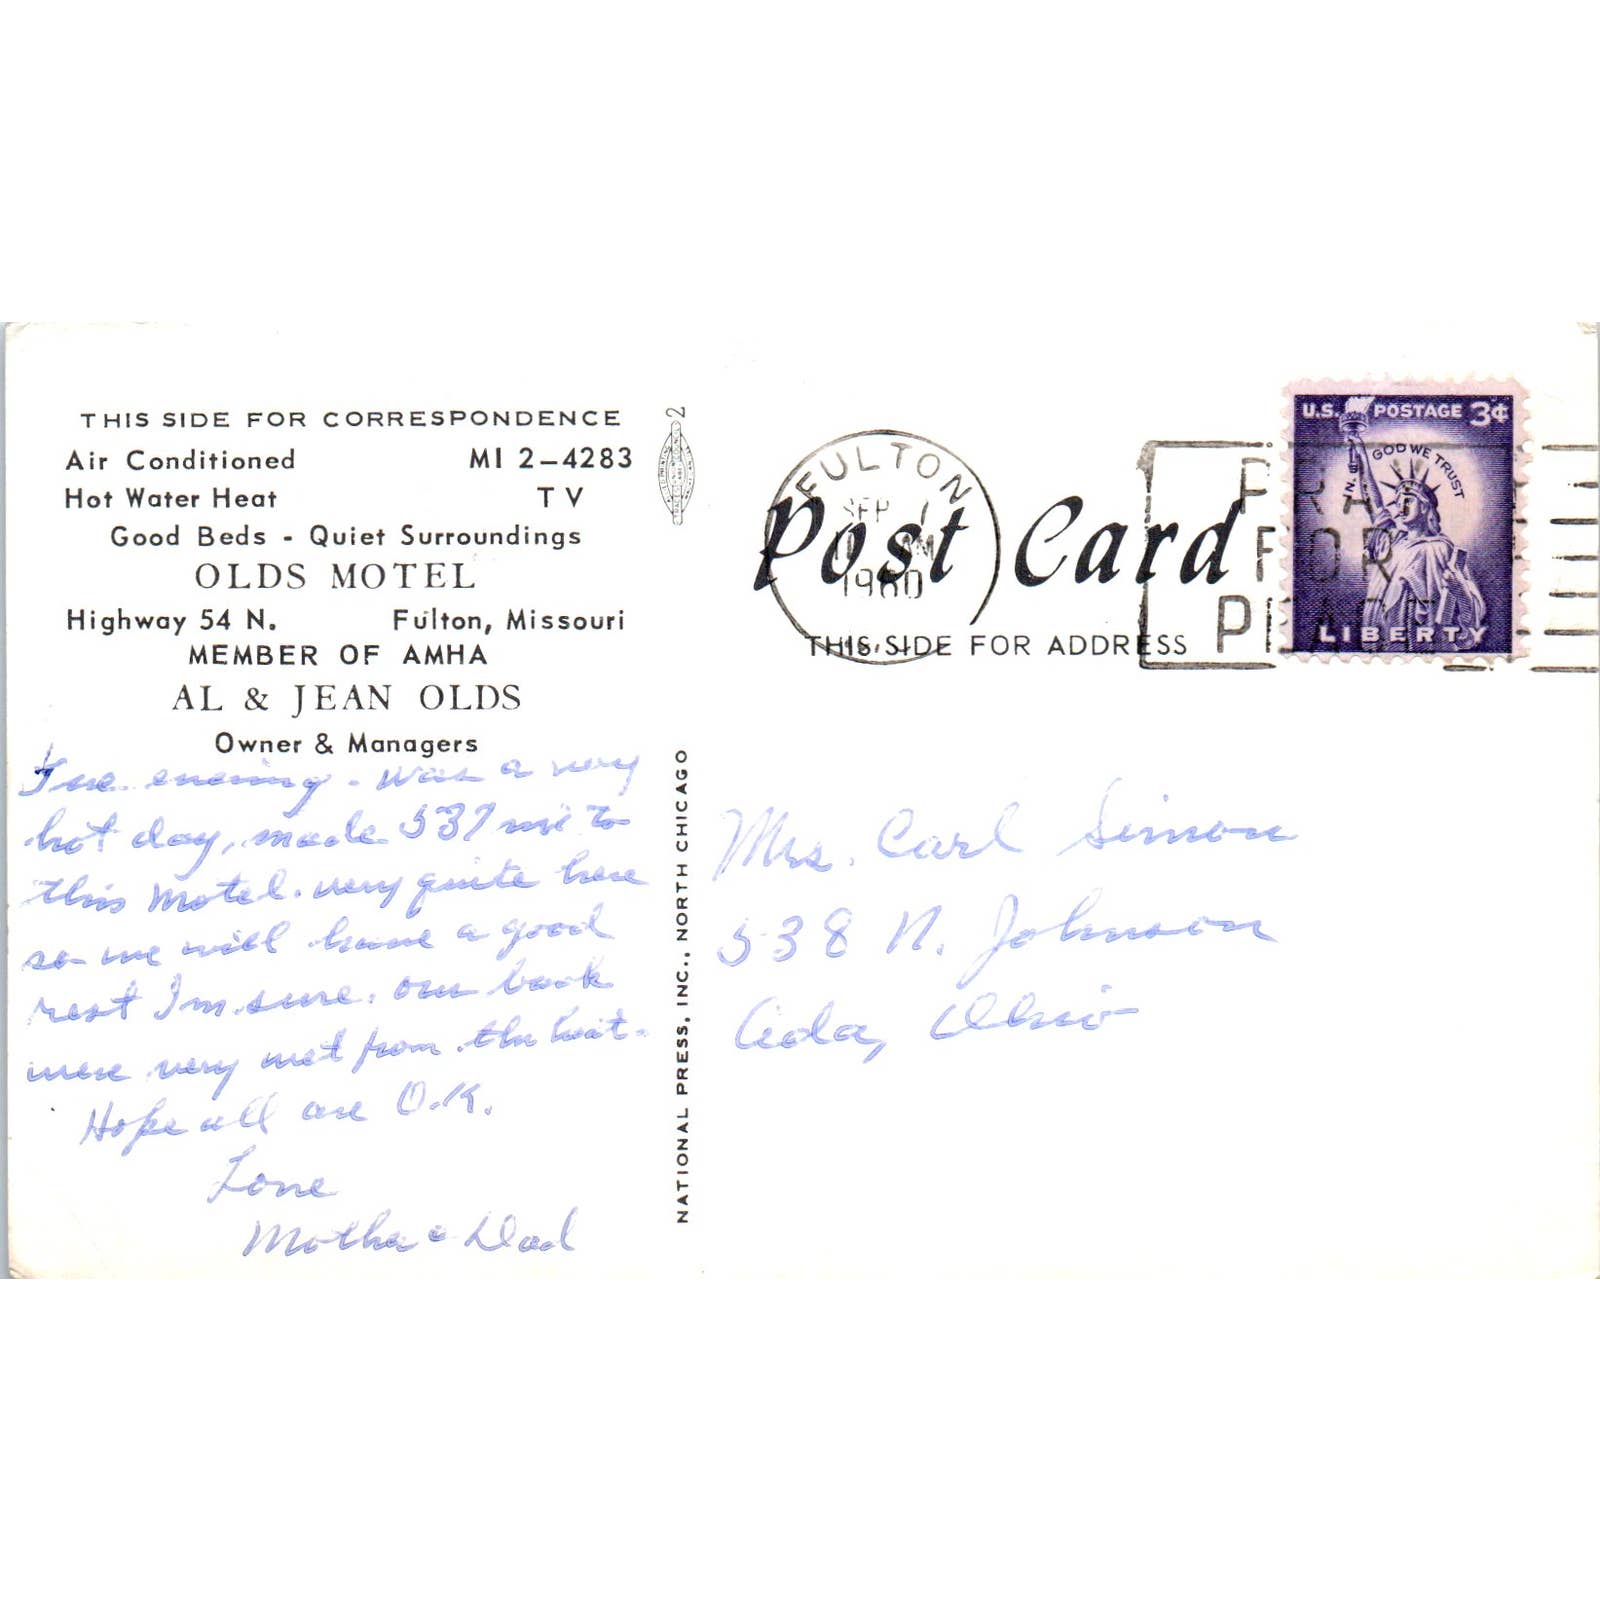 THIS SIDE FOR CORRESPONDENCE
Air Conditioned MI 2-4283
Hot Water Heat TV
Good Beds - Quiet Surroundings
OLDS MOTEL
Highway 54 N. Fulton, Missouri
MEMBER OF AMHA
AL & JEAN OLDS
Owner & Managers
Tue. evening. was a very
hot day, made 537 mi to
this Motel. very quite here
so we will have a good
rest I'm sure. our back
were very wet from the heat.
Hope all are O.K.
Love
Mother & Dad
2
NATIONAL PRESS, INC., NORTH CHICAGO
Post Card
THIS SIDE FOR ADDRESS
FULTON
SEP 1
AM
1960
PRAY
FOR
PEACE
U.S. POSTAGE 3¢
IN GOD WE TRUST
LIBERTY
Mrs. Carl Simon
538 N. Johnson
Ada, Ohio